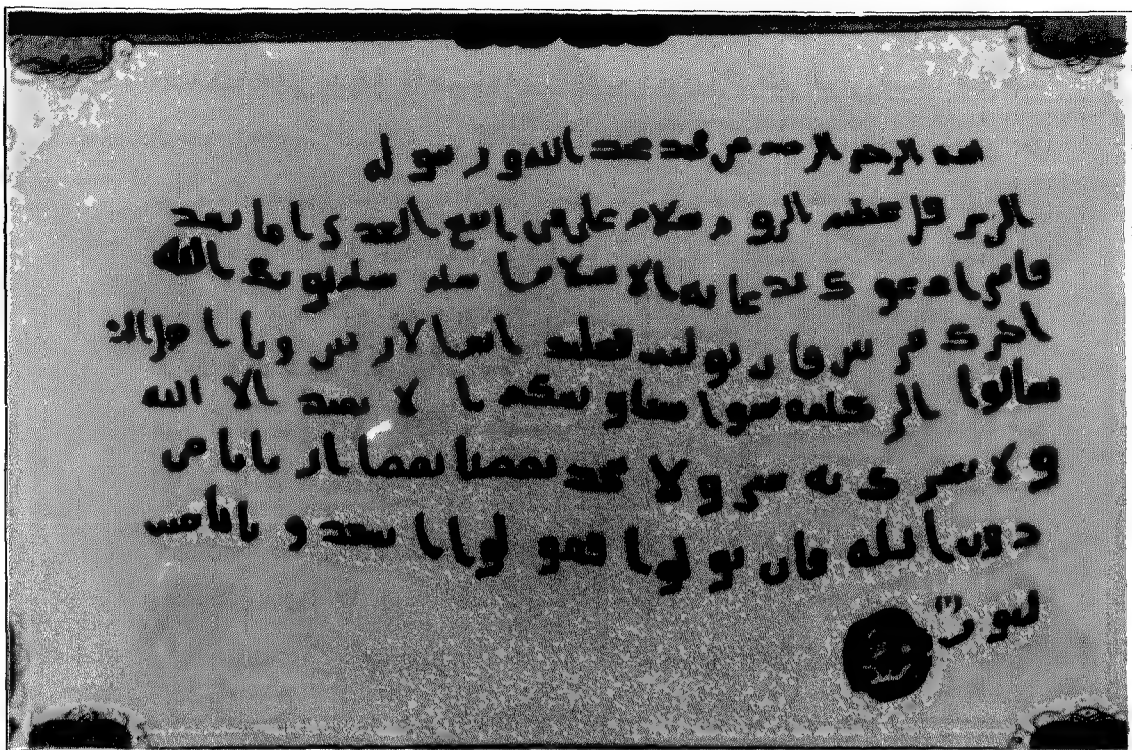 بسم الله الرحمن الرحيم من محمد عبد الله و رسوله
الى هرقل عظيم الروم سلام على من اتبع الهدى اما بعد
فانى ادعوك بدعاية الاسلام اسلم تسلم يوتك الله
اجرك مرتين فان توليت فعليك اثم الاريسين و يا اهل
تعالوا الى كلمة سوا بيننا وبينكم ا لا نعبد الا الله
ولا نشرك به شى ولا يتخذ بعضنا بعضا اربابا من
دون الله فان تولوا فقولوا اشهدوا بانا مس
لمون